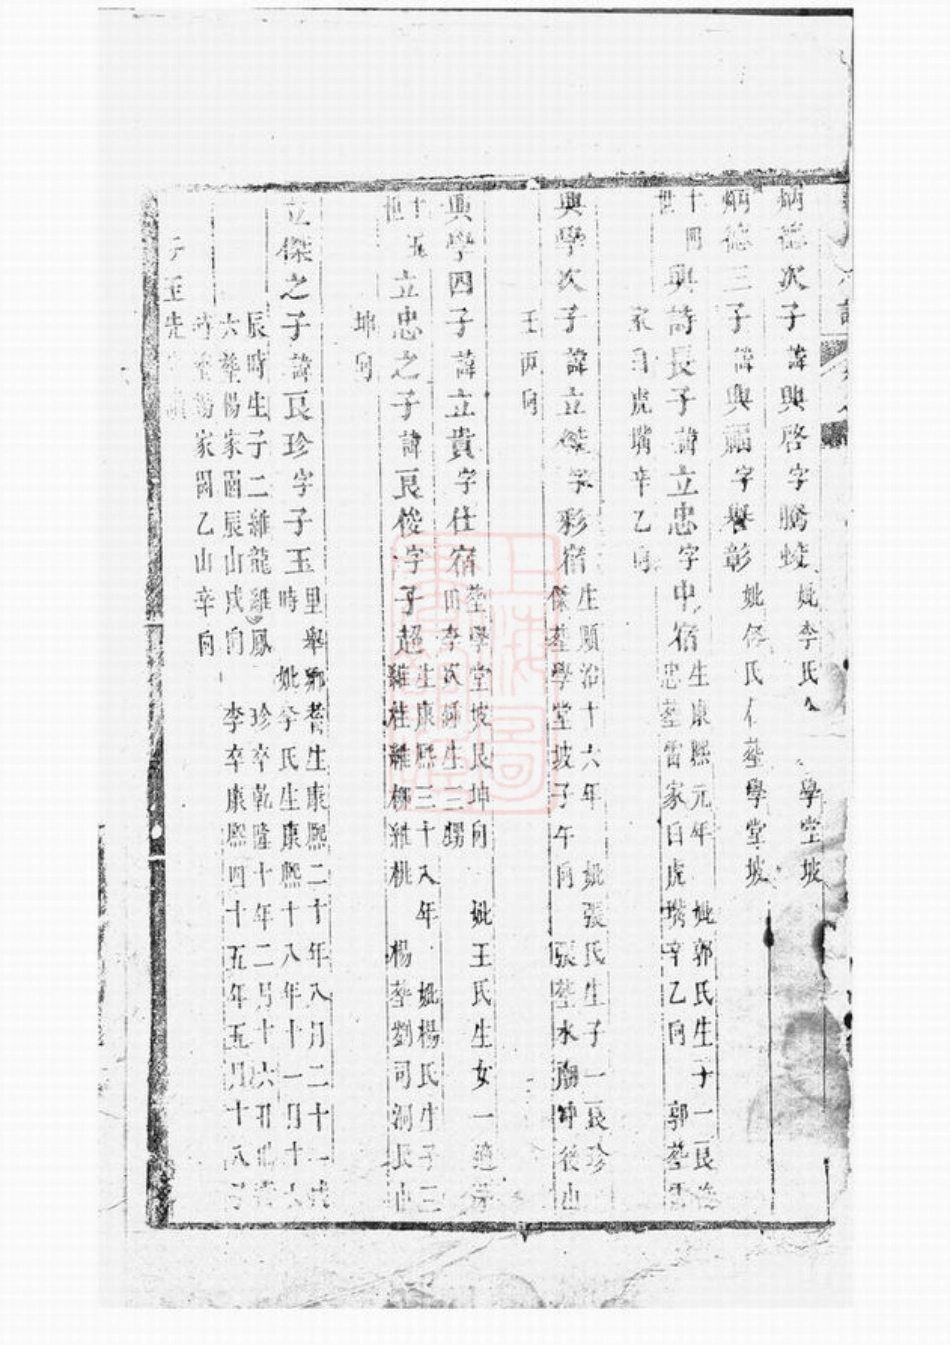 炳德次子諱興啓字騰蛟 妣李氏 學堂坡
炳德三子諱興福字譽彰 妣 氏 葬學堂坡
十四世
興詩長子諱立忠字中宿 生康熙元年 妣郭氏生子一良
忠葬雷家白虎嘴辛乙向 郭葬雷
家白虎嘴辛乙向
興學次子諱立傑字彩宿 生順治十六年 妣張氏生子一良珍
傑葬學堂坡子午向 張葬水廟冲後山
壬丙向
興學四子諱立貴字仕宿 葬學堂坡艮坤向 妣王氏生女一適
田李氏 生三
十五世
立忠之子諱良俊字子超 生康熙三十八年 妣楊氏生子三
維桂維柳維桃 楊葬劉司洞艮山
坤向
立傑之子諱良珍字子玉 里舉鄉耆生康熙二十年八月二十一戌
時 妣李氏生康熙十八年十一月十六
辰時生子二維龍維鳳 珍卒乾隆十年二月十六
六葬楊家園辰山戌向 李卒康熙四十五年五月十八
時葬楊家園乙山辛向
子至先